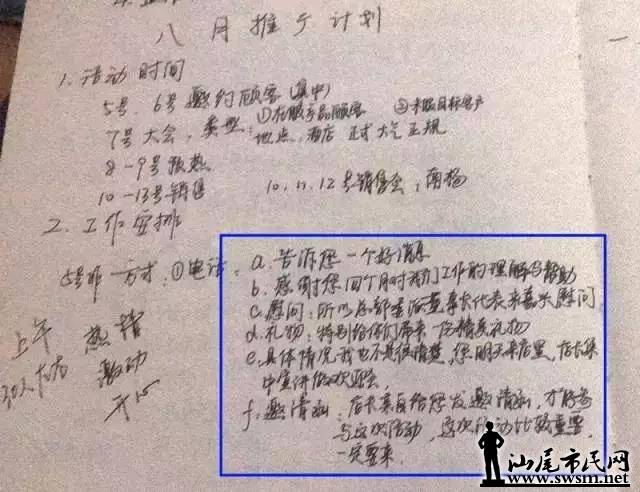 八月推广计划
1. 活动时间
5号、6号邀约顾客(集中)
①在服产品顾客 ②未服目标客户
7号大会, 类型:
地点, 酒店 正式 大气 正规
8-9号预热
10-13号销售 10、11、12号销售会,
2. 工作安排
方式:①电话:a. 告诉您一个好消息
b. 感谢您 个月对我们工作的理解与帮助
c. 慰问:所以总部 董事长代表来 慰问
d. 礼物:特别给你们带来一份精美礼物
e. 具体情况我也不是很清楚,您明天来店里,店长集
中宣讲 欢迎会
f. 邀请函:店长亲自给您发邀请函,才能参
与这次活动,这次活动比较重要,
一定要来.
上午 热情
30人左右 激动
开心
汕尾市民网
www.swsm.net